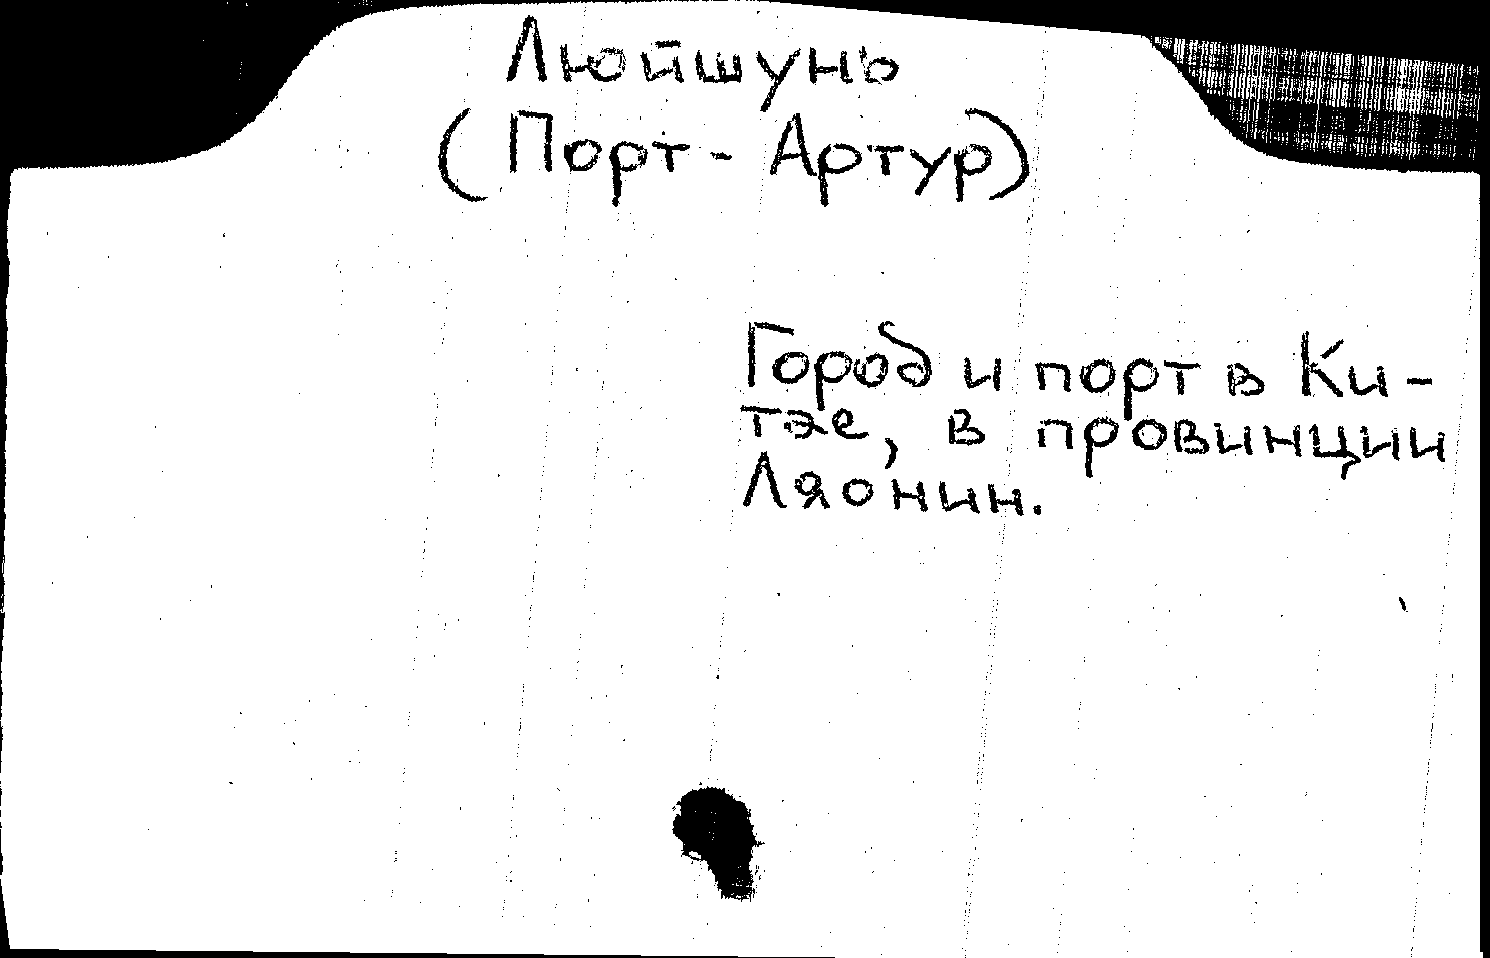 Люйшунь
(Порт-Артур)
Город и порт в Ки-
тае, в провинции
Ляонин.